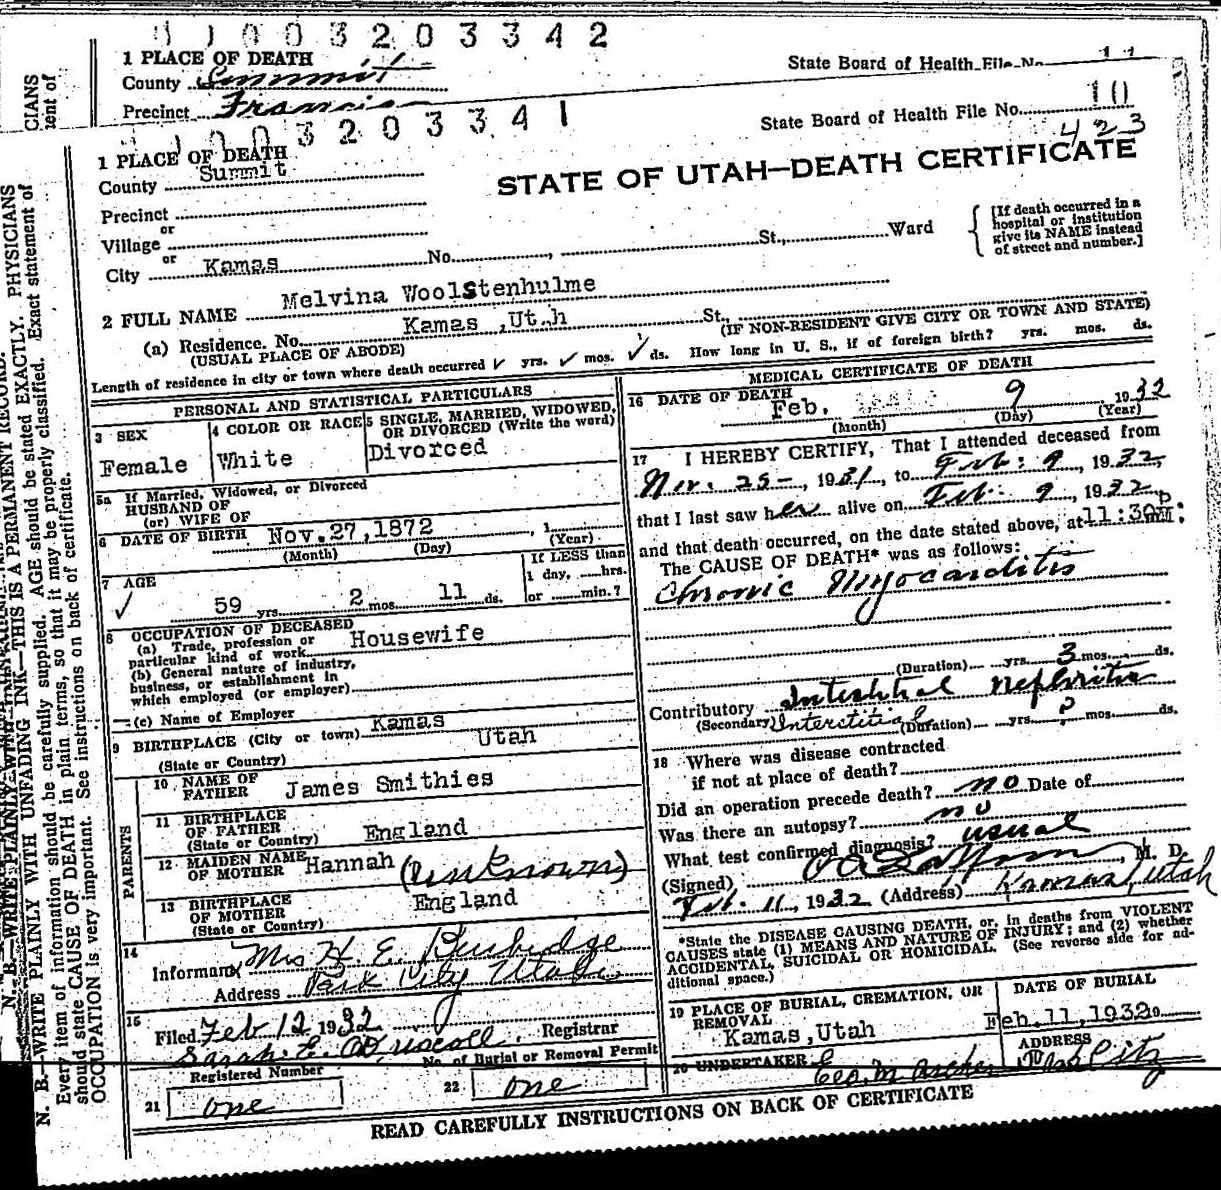 0003203342
1 PLACE OF DEATH
County Summit
Precinct Francis
State Board of Health File No. 11
003203341
State Board of Health File No. 10
423
1 PLACE OF DEATH
County Summit
STATE OF UTAH—DEATH CERTIFICATE
Precinct
or
Village
or
City Kamas No. , St., Ward
[If death occurred in a hospital or institution give its NAME instead of street and number.]
2 FULL NAME Melvina Woolstenhulme
(a) Residence. No. Kamas ,Utah St.,
(USUAL PLACE OF ABODE) (IF NON-RESIDENT GIVE CITY OR TOWN AND STATE)
Length of residence in city or town where death occurred ✓ yrs. ✓ mos. ✓ ds. How long in U. S., if of foreign birth? yrs. mos. ds.
PERSONAL AND STATISTICAL PARTICULARS
3 SEX
Female
4 COLOR OR RACE
White
5 SINGLE, MARRIED, WIDOWED, OR DIVORCED (Write the word)
Divorced
5a If Married, Widowed, or Divorced
HUSBAND OF
(or) WIFE OF
6 DATE OF BIRTH Nov.27,1872 , 1
(Month) (Day) (Year)
7 AGE
✓ 59 yrs. 2 mos. 11 ds.
If LESS than
1 day, hrs.
or min.?
8 OCCUPATION OF DECEASED
(a) Trade, profession or
particular kind of work Housewife
(b) General nature of industry,
business, or establishment in
which employed (or employer)
(c) Name of Employer
9 BIRTHPLACE (City or town) Kamas
(State or Country) Utah
PARENTS
10 NAME OF FATHER James Smithies
11 BIRTHPLACE OF FATHER
(State or Country) England
12 MAIDEN NAME OF MOTHER Hannah (Unknown)
13 BIRTHPLACE OF MOTHER
(State or Country) England
14
Informant Mrs H. E.
Address Park City Utah
15
Filed Feb 12 1932
Sarah E. O'Driscoll Registrar
Registered Number
21 one
No. of Burial or Removal Permit
22 one
MEDICAL CERTIFICATE OF DEATH
16 DATE OF DEATH
Feb. 9 1932
(Month) (Day) (Year)
17 I HEREBY CERTIFY, That I attended deceased from
Nov. 25-, 1931, to Feb. 9, 1932,
that I last saw her alive on Feb. 9, 1932
and that death occurred, on the date stated above, at 11:30 P M.
The CAUSE OF DEATH* was as follows:
Chronic Myocarditis
(Duration) yrs. 3 mos. ds.
Contributory Interstitial Nephritis
(Secondary) Interstitial (Duration) yrs. ? mos. ds.
18 Where was disease contracted
if not at place of death?
Did an operation precede death? no Date of
Was there an autopsy? no
What test confirmed diagnosis? usual
(Signed) , M. D.
Feb. 11, 1932 (Address) Kamas, Utah
*State the DISEASE CAUSING DEATH, or, in deaths from VIOLENT
CAUSES state (1) MEANS AND NATURE OF INJURY; and (2) whether
ACCIDENTAL, SUICIDAL OR HOMICIDAL. (See reverse side for ad-
ditional space.)
19 PLACE OF BURIAL, CREMATION, OR REMOVAL
Kamas,Utah
DATE OF BURIAL
Feb.11,1932
20 UNDERTAKER Geo. M. Archer
ADDRESS
Park City
READ CAREFULLY INSTRUCTIONS ON BACK OF CERTIFICATE
N. B.—WRITE PLAINLY WITH UNFADING INK—THIS IS A PERMANENT RECORD.
Every item of information should be carefully supplied. AGE should be stated EXACTLY. PHYSICIANS
should state CAUSE OF DEATH in plain terms, so that it may be properly classified. Exact statement of
OCCUPATION is very important. See instructions on back of certificate.